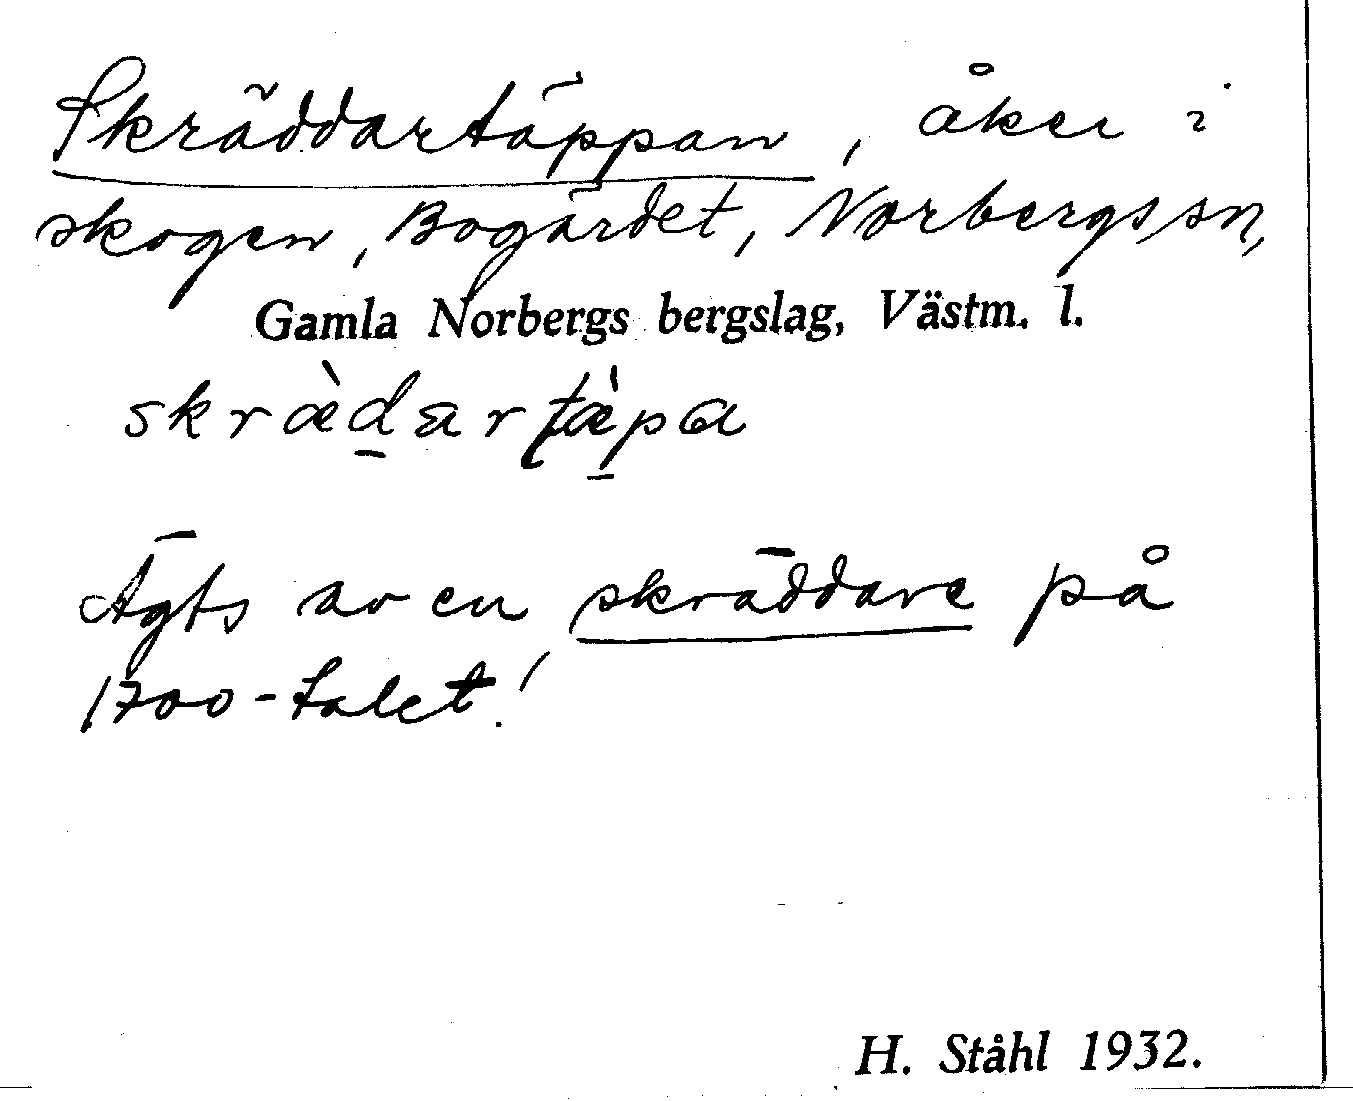 Skräddartäppan, åker i
skogen, Bogärdet, Norbergs sn,
Gamla Norbergs bergslag, Västm. l.
skræ̀d̠artæ̀p̠a
Ägts av en skräddare på
1700-talet!
H. Ståhl 1932.